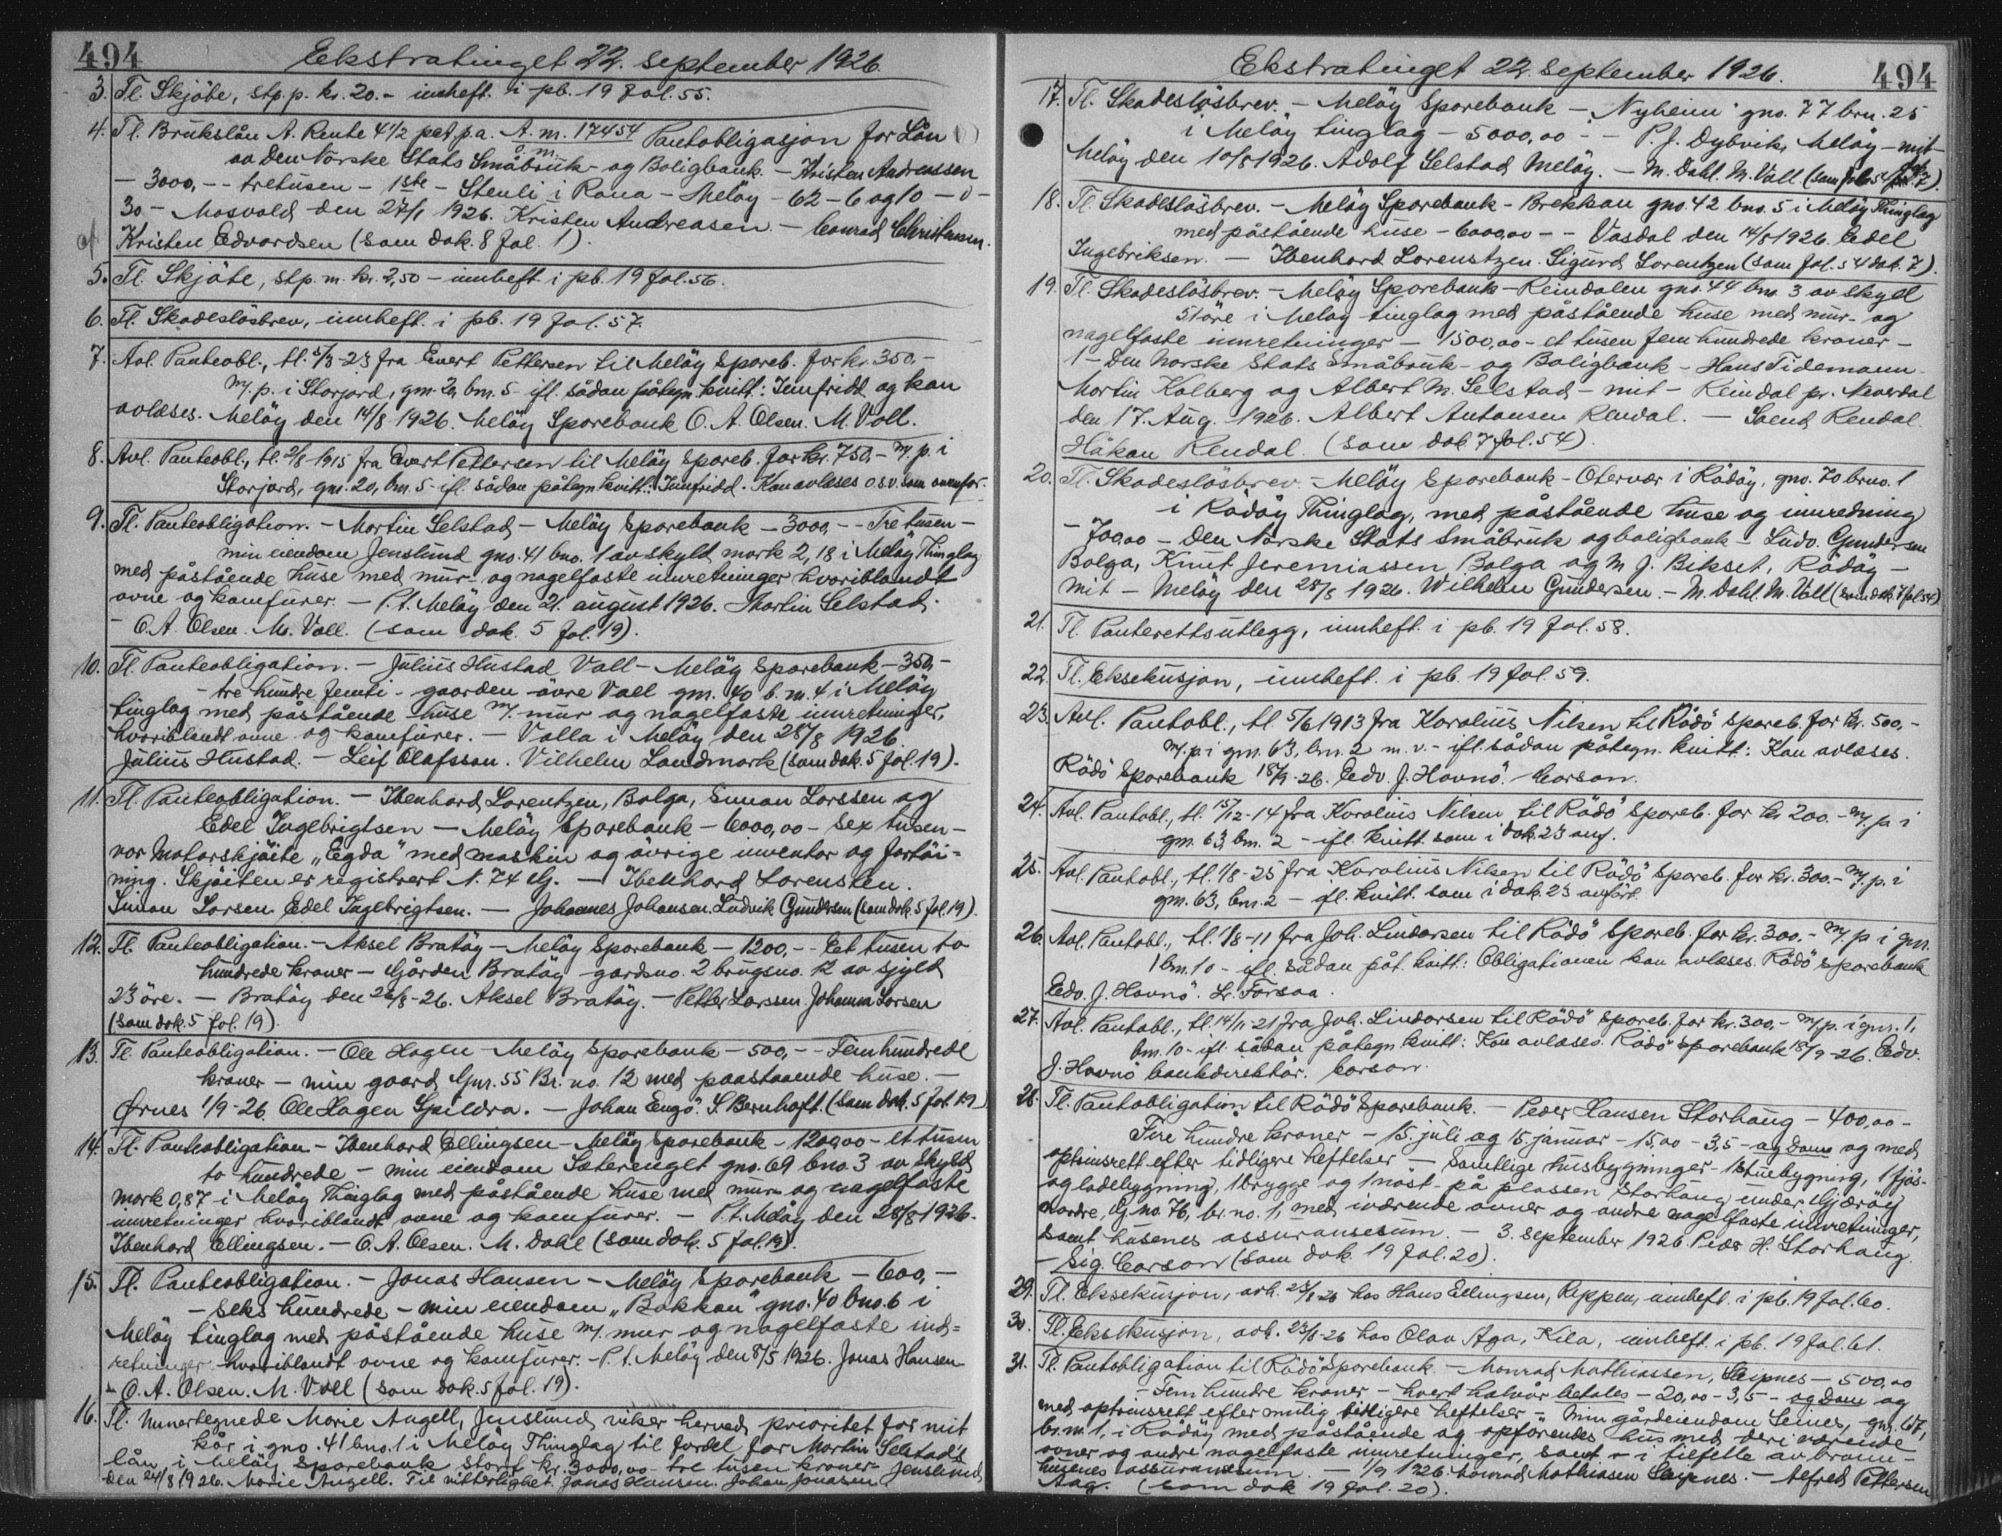 494 Ekstratinget 22. september 1926.
3. Tl. Skjöte, stp. p. kr. 20.- innheft. i pb. 19 fol. 55.
4. Tl. Brukslån A. Rente 4 1/2 pct. p.a. A. m. 17454 Pantobligasjon for Lån
av Den Norske Stats Småbruk- og Boligbank. - Kristen Andreassen
- 3000,- - tretusen - 1ste - Stenli i Rana - Melöy - 62 - 6 og 10 - 0 -
30 - Mosvold den 27/1 1926. Kristen Andreasen - Conrad Christensen.
Kristen Edvardsen (som dok. 8 fol. 1).
5. Tl. Skjöte, stp. m. kr. 2,50 - innheft. i pb. 19 fol. 56.
6. Tl. Skadeslösbrev, innheft. i pb. 19 fol. 57.
7. Avl. Panteobl., tl. 5/3-23 fra Evert Pettersen til Melöy Spareb. for kr. 350,-
m/. p. i Storjord, gnr. 20, bnr. 5 - ifl. sådan påtegn. kvitt.: Innfridt og kan
avlæses. Melöy den 14/8 1926. Melöy Sparebank O. A. Olsen. M. Voll.
8. Avl. Panteobl., tl. 2/8 1915 fra Evert Pettersen til Melöy Spareb. for kr. 750,- m/. p. i
Storjord, gnr. 20, bnr. 5 - ifl. sådan påtegn. kvitt.: Innfridd. Kan avlæses o.s.v. som ovenfor.
9. Tl. Panteobligation. - Martin Selstad - Melöy Sparebank - 3000,- - Tre tusen -
min eiendom Jenslund gno. 41 bno. 1 av skyld mark 2,18 i Melöy Thinglag
med påstående huse med mur- og nagelfaste innretninger hvoriblandt
ovne og komfurer. - P.t. Melöy den 21. august 1926. Martin Selstad.
- O. A. Olsen. M. Voll. (som dok. 5 fol. 19).
10. Tl. Panteobligation. - Julius Hustad Vall - Melöy Sparebank - 350,-
- tre hundre femti - gaarden övre Vall gnr. 40 b. nr. 4 i Melöy
tinglag med påstående huse m/. mur og nagelfaste innretninger,
hvoriblandt ovne og komfurer. - Valla i Melöy den 28/8 1926
Julius Hustad. - Leif Olafsson. Vilhelm Landmark (som dok. 5 fol. 19).
11. Tl. Panteobligation. - Ibenhard Lorentzen, Bolga, Simon Larssen og
Edel Ingebrigtsen - Melöy Sparebank - 6000,00 - Sex tusen -
vor Motorskjöite „Egda" med maskin og övrige inventar og fortöi-
ning. Skjöiten er registrert N. 74 Mg. - Ibenhard Lorensten.
Simon Larsen. Edel Ingebrigtsen. - Johannes Johansen. Ludvik Gundersen (som dok. 5 fol. 19).
12. Tl. Panteobligation. - Aksel Bratöy - Melöy Sparebank - 1200,- - Et tusen to
hundrede kroner - Gården Bratöy gardsno. 2 brugsno. 12 av sjyld
23 öre. - Bratöy den 26/8-26. Aksel Bratöy. - Petter Larssen Johanna Larsen
(som dok. 5 fol. 19).
13. Tl. Panteobligation. - Ole Hagen - Melöy Sparebank - 500,- - Femhundrede
kroner - min gaard Gnr. 55 Br. no. 12 med paastaaende huse. -
Ørnes 1/9-26. Ole Hagen Spildra. - Johan Engö. S. Bernhoft. (som dok. 5 fol. 19)
14. Tl. Panteobligation - Ibenhard Ellingsen - Melöy Sparebank - 1200,00 - et tusen
to hundrede - min eiendom Sæterenget gno. 69 bno. 3 av Skyld
mark 0,87 i Melöy Thinglag med påstående huse med mur- og nagelfaste
innretninger hvoriblandt ovne og komfurer. - P.t. Melöy den 28/8 1926.
Ibenhard Ellingsen. - O. A. Olsen. M. Dahl (som dok. 5 fol. 19).
15. Tl. Panteobligation. - Jonas Hansen - Melöy Sparebank - 600,-
- seks hundrede - min eiendom „Bakkan" gno. 40 bno. 6 i
Melöy tinglag med påstående huse m/. mur og nagelfaste ind-
retninger hvoriblandt ovne og komfurer. - P.t. Melöy den 8/5 1926. Jonas Hansen
- O. A. Olsen. M. Voll (som dok. 5 fol. 19).
16. Tl. Unnertegnede Marie Angell, Jenslund viker herved prioritet for mit
kår i gno. 41 bno. 1 i Melöy Thinglag til fordel for Martin Selstad's
lån i Melöy Sparebank stort kr. 3000,00 - tre tusen kroner - Jenslund
den 24/8 1926. Marie Angell. Til vitterlighet Jonas Hansen. Johan Jonassen.
Ekstratinget 22. september 1926. 494
17. Tl. Skadeslösbrev. - Melöy Sparebank - „Nyheim" gno. 77 bru. 25
i Melöy tinglag - 5000,00 - - P. J. Dybvik, Melöy - mit -
Melöy den 10/8 1926. Adolf Selstad Melöy. - M. Dahl. M. Voll (som fol. 54 dok. 7).
18. Tl. Skadeslösbrev. - Melöy Sparebank - Brekkan gno. 42 bno. 5 i Melöy Thinglag
med påstående huse - 6000,00 - - Vasdal den 14/8 1926. Edel
Ingebriksen. - Ibenhard Lorenstzen. Sigurd Lorentzen (som fol. 54 dok. 7).
19. Tl. Skadeslösbrev. - Melöy Sparebank - Reindalen gno. 44 bno. 3 av skyld
51 öre i Melöy tinglag med påstående huse med mur- og
nagelfaste innretninger - 1500,00 - et tusen fem hundrede kroner -
1 - Den norske Stats Småbruk- og Boligbank - Hans Tidemann -
Martin Kolberg og Albert M. Selstad - mit - Reindal pr. Neverdal
den 17. Aug. 1926. Albert Antonsen Rendal. - Svend Rendal.
Håkon Rendal. (som dok. 7 fol. 54).
20. Tl. Skadeslösbrev. - Melöy Sparebank - Otervær i Rödöy, gno. 70 bruno. 1
i Rödöy Thinglag, med påstående huse og innredning
- 700,00 - Den Norske Stats Småbruk og boligbank - Ludv. Gundersen
Bolga, Knut Jeremiassen Bolga og M. J. Bikset, Rödöy -
mit - Melöy den 28/8 1926. Wilhelm Gundersen. - M. Dahl. M. Voll (som dok. 7 fol. 54)
21. Tl. Panterettsutlegg, innheft. i pb. 19 fol. 58.
22. Tl. Eksekusjon, innheft. i pb. 19 fol. 59.
23. Avl. Pantobl., tl. 5/6 1913 fra Karolius Nilsen til Rödö Spareb. for kr. 500,-
m/. p. i gnr. 63, bnr. 2 m. v. - ifl. sådan påtegn. kvitt.: Kan avlæses.
Rödö Sparebank 18/9-26. Edv. J. Havnö. Carson.
24. Avl. Pantobl., tl. 15/12-14 fra Karolius Nilsen til Rödö Spareb. for kr. 200.- m/. p. i
gnr. 63, bnr. 2 - ifl. kvitt. som i dok. 23 anf.
25. Avl. Pantobl., tl. 1/8-25 fra Karolius Nilsen til Rödö Spareb. for kr. 300.- m/. p. i
gnr. 63, bnr. 2 - ifl. kvitt. som i dok. 23 anfört.
26. Avl. Pantobl., tl. 1/8-11 fra Joh. Lindorsen til Rödö Spareb. for kr. 300.- m/. p. i gnr.
1 bnr. 10 - ifl. sådan påt. kvitt.: Obligationen kan avlæses. Rödö Sparebank
Edv. J. Havnö. Lr. Forsaa.
27. Avl. Pantobl., tl. 14/11-21 fra Joh. Lindorsen til Rödö Spareb. for kr. 300,- m/. p. i gnr. 1,
bnr. 10 - ifl. sådan påtegn. kvitt.: Kan avlæses. Rödö Sparebank 18/9-26. Edv.
J. Havnö bankdirektör. Carson.
28. Tl. Pantobligation til Rödö Sparebank. - Peder Hansen Storhaug - 400,00 -
Fire hundre kroner - 15. juli og 15. januar - 15,00 - 3,5 - og Döns og med
optrinsrett efter tidligere heftelser - Samtlige husbygninger - 1 stuebygning, 1 fjös-
og ladebygning, 1 brygge og 1 nöst - på plassen Storhaug under Gjæröy
nordre, G. no. 76, br. no. 1, med iværende ovner og andre nagelfaste innretninger,
samt husenes assuransesum. - 3. september 1926 Peder H. Storhaug.
- Sig. Carson (som dok. 19 fol. 20).
29. Tl. Eksekusjon, avh. 23/8-26 hos Hans Ellingsen, Reppen, innheft. i pb. 19 fol. 60.
30. Tl. Eksekusjon, avh. 23/8-26 hos Olav Aga, Kila, innheft. i pb. 19 fol. 61.
31. Tl. Pantobligation til Rödö Sparebank - Monrad Mathiassen, Seipnes - 500,00
- Fem hundre kroner - hvert halvår betales - 20,00 - 3,5 - og Döm og
med optrinsrett efter mulig tidligere heftelser - Min gårdeiendom Seines, gnr. 67,
br. nr. 1, i Rödöy med påstående og opförendes hus med deri værende
ovner og andre nagelfaste innretninger, samt - i tilfelle av brann -
husenes assuransesum. - 1/9 1926. Konrad Mathiasen Seipnes. - Alfred Pettersen
Aag. (som dok 19 fol. 20).